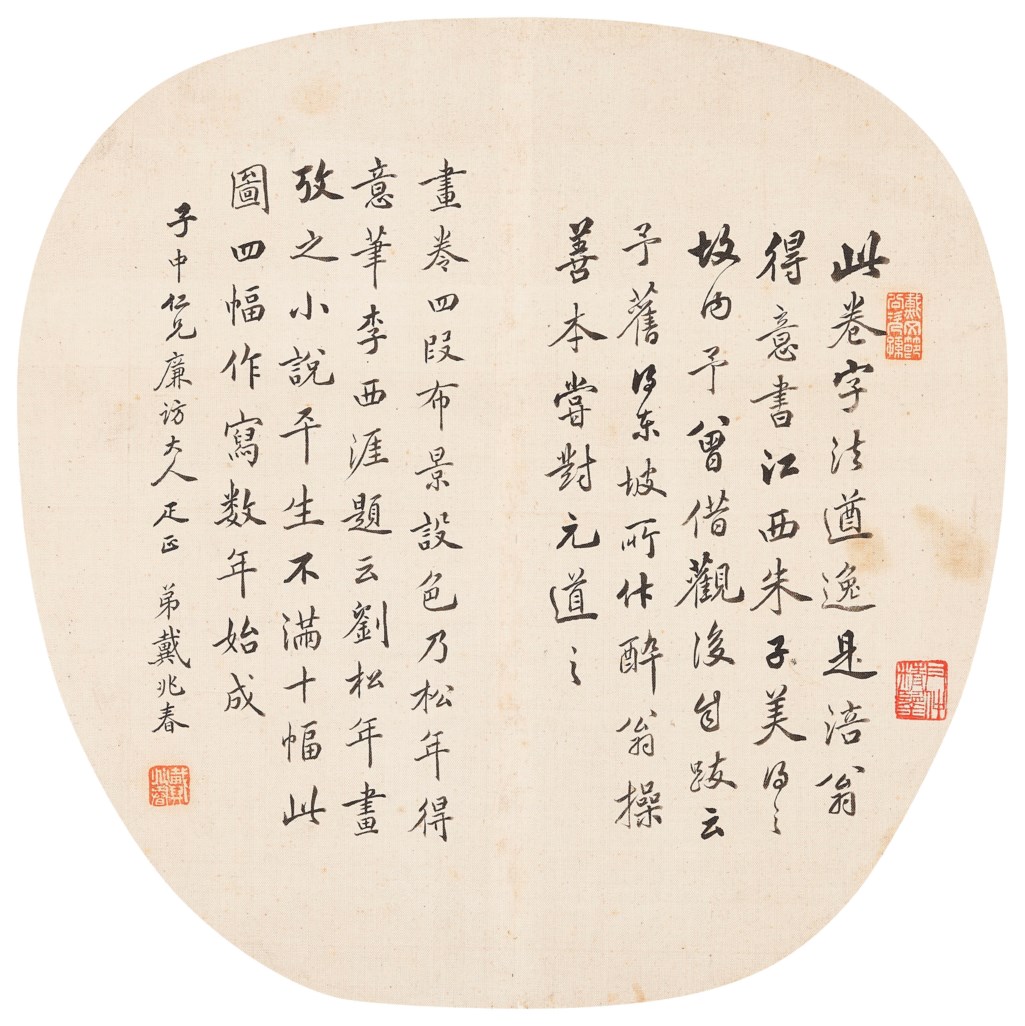 此卷字法遒逸是涪翁
得意書江西朱子美得之
故内予曾借觀後自跋云
予舊得東坡所作醉翁操
善本嘗對元道之
畫卷四段布景設色乃松年得
意筆李西涯題云劉松年畫
攷之小說平生不滿十幅此
圖四幅作寫数年始成
子中仁兄廉訪大人疋正 弟戴兆春